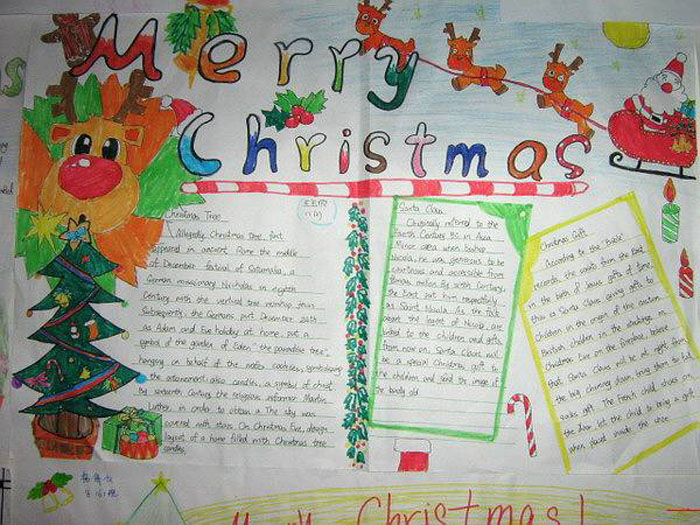 Merry
Christmas
Christmas Tree
Allegedly Christmas tree first
appeared in ancient Rome the middle
of December festival of Saturnalia, a
German missionary Nicholas in eighth
Century with the vertical tree
Subsequently, the Germans put December 24th
as Adam and Eve holiday, at home put a
symbol of the garden of Eden "the paradise tree",
hanging on behalf of the cookies, symbolizing
the atonement; also candles, a symbol of christ
By sixteenth Century, the religious reformer Martin
Luther, in order to obtain a The sky was
covered with stars On Christmas Eve, design
layout of a home filled with Christmas tree
candles.
Santa Claus
Originally referred to the
Fourth Century BC in Asia
Minor area when bishop
Nicola, he was generous to be
courteous and accessible from
Roman million By sixth Century,
the East put him respectfully
as Saint Nicola. As the fact
about the legent of Nicola are
linked to the children and gifts,
from now on, Santa Claus will
be a special Christmas gift to
the children and send the image of
the lonely old
Christmas Gift
According to the "Bible"
records, the saints from the East
in the birth of Jesus gifts of time,
this is Santa Claus giving gifts to
Children in the origin of the custom
British children in the stockings on
Christmas Eve on the fireplace, believe
that Santa Claus will be at night from
the big chimney down, bring them to full
socks gift. The French child shoes on
the door let the child to bring a gift
when placed inside the shoe
Merry Christmas!